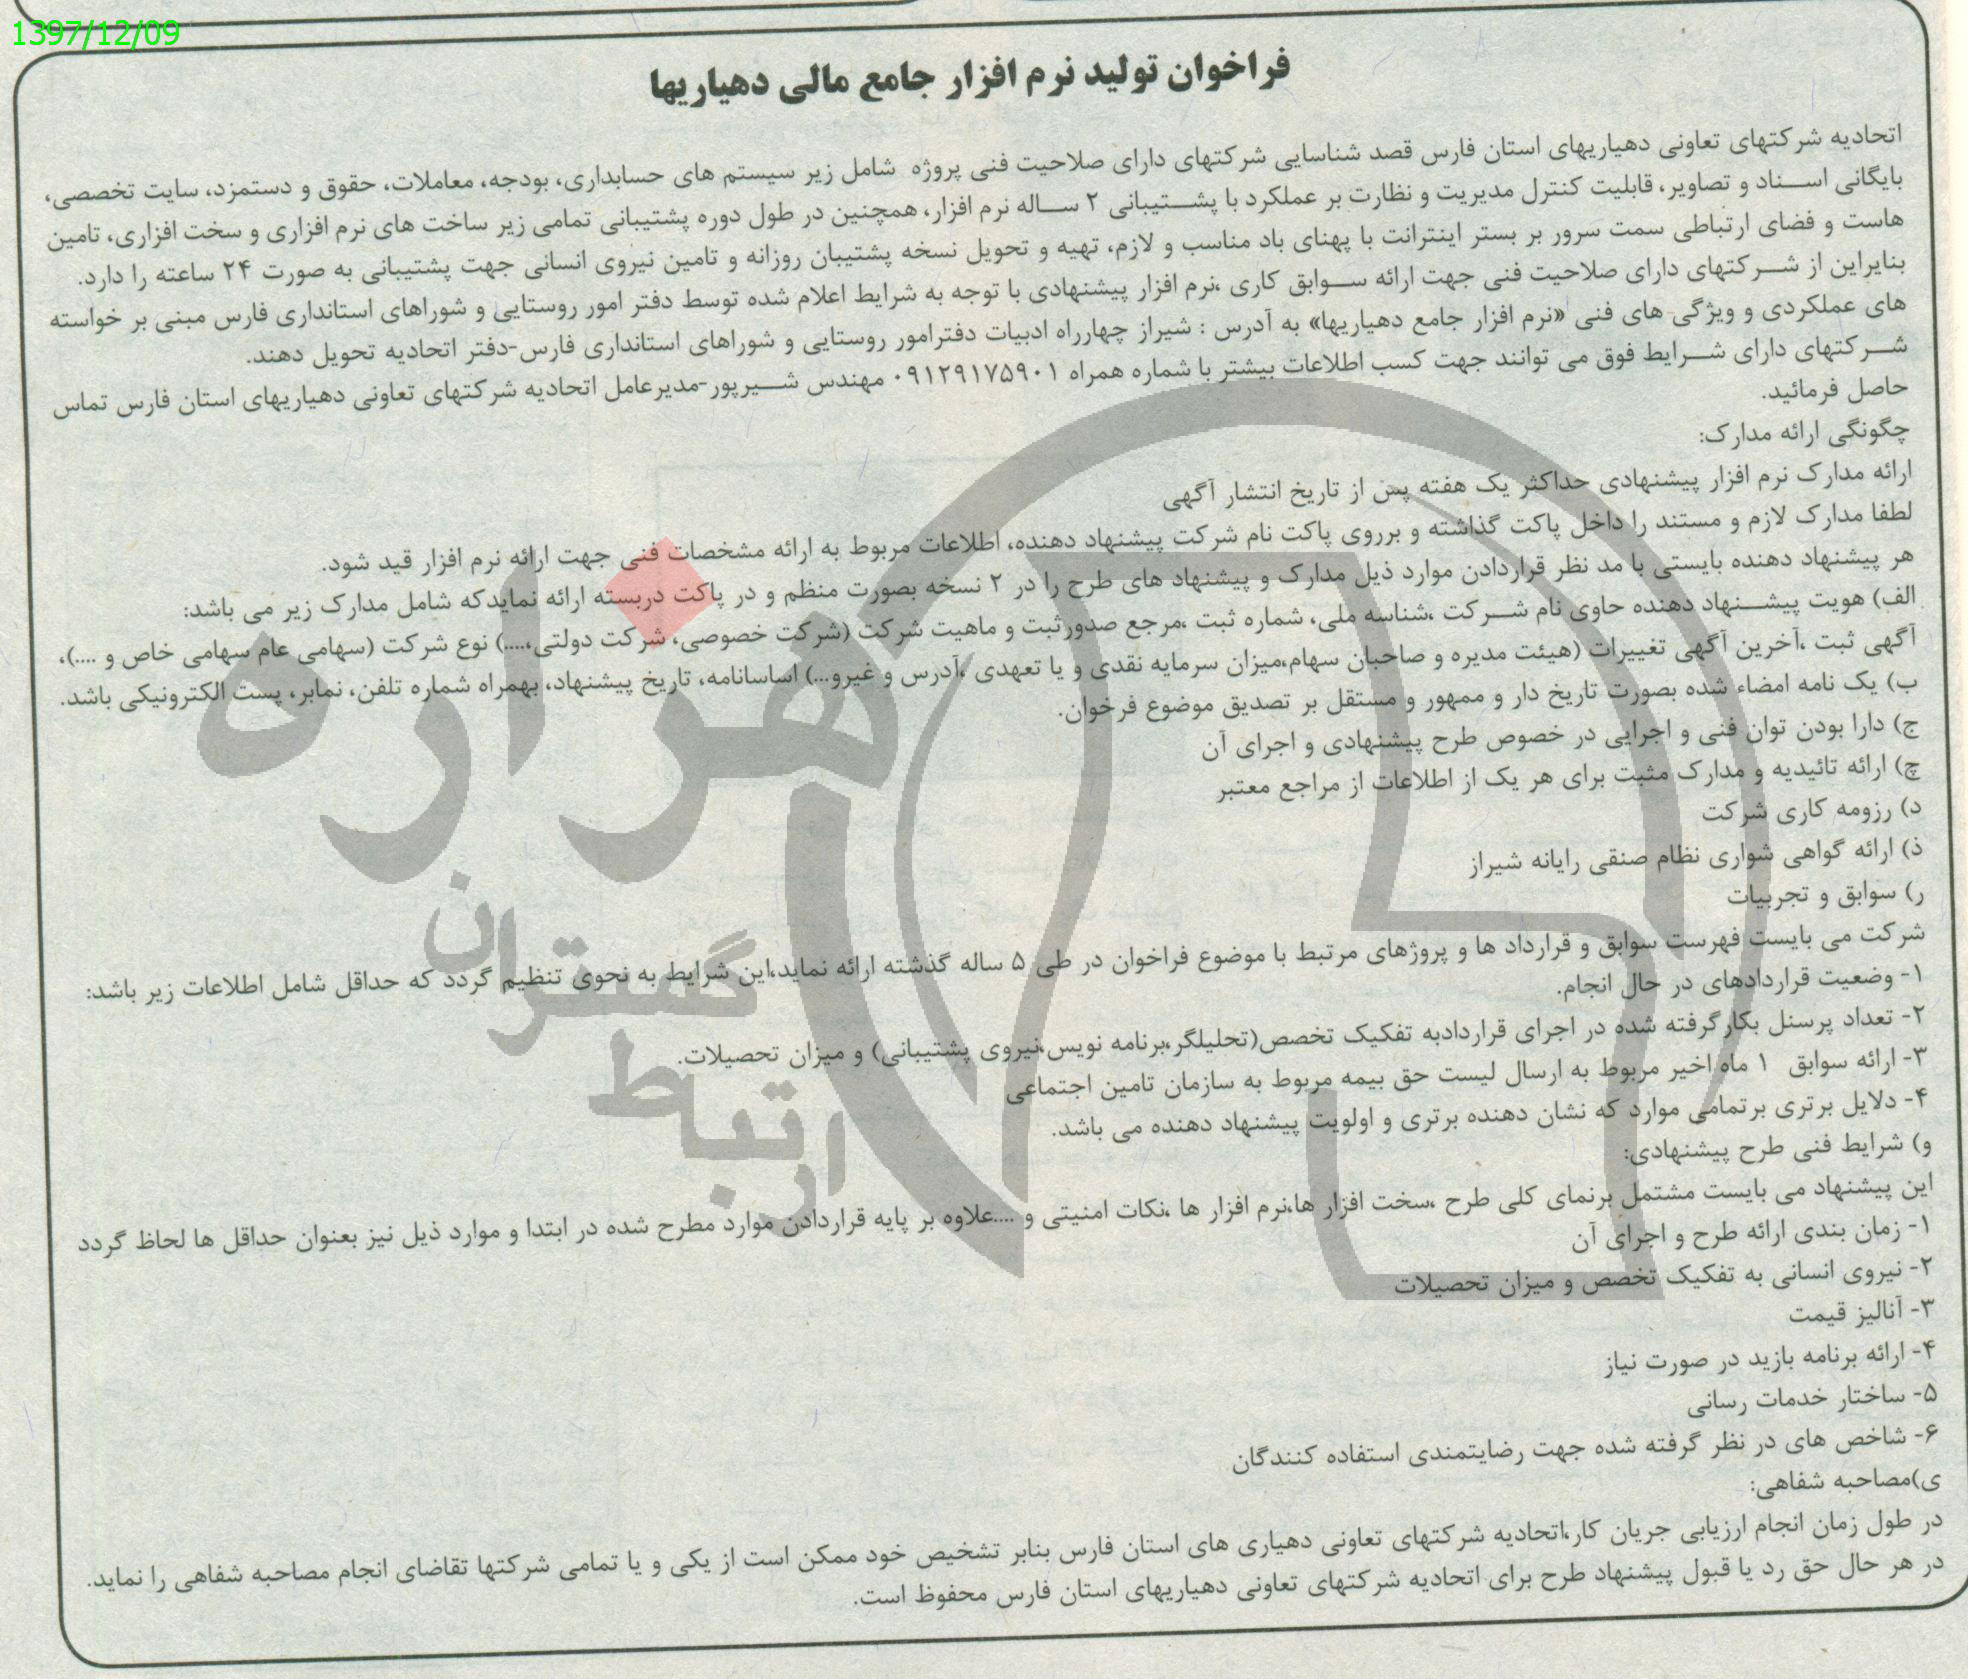 1397/12/09
فراخوان تولید نرم افزار جامع مالی دهیاریها
اتحادیه شرکتهای تعاونی دهیاریهای استان فارس قصد شناسایی شرکتهای دارای صلاحیت فنی پروژه شامل زیر سیستم های حسابداری، بودجه، معاملات، حقوق و دستمزد، سایت تخصصی،
بایگانی اسناد و تصاویر، قابلیت کنترل مدیریت و نظارت بر عملکرد با پشتیبانی ۲ ساله نرم افزار، همچنین در طول دوره پشتیبانی تمامی زیر ساخت های نرم افزاری و سخت افزاری، تامین
هاست و فضای ارتباطی سمت سرور بر بستر اینترانت با پهنای باد مناسب و لازم، تهیه و تحویل نسخه پشتیبان روزانه و تامین نیروی انسانی جهت پشتیبانی به صورت ۲۴ ساعته را دارد.
بنایراین از شرکتهای دارای صلاحیت فنی جهت ارائه سوابق کاری ،نرم افزار پیشنهادی با توجه به شرایط اعلام شده توسط دفتر امور روستایی و شوراهای استانداری فارس مبنی بر خواسته
های عملکردی و ویژگی های فنی «نرم افزار جامع دهیاریها» به آدرس : شیراز چهارراه ادبیات دفترامور روستایی و شوراهای استانداری فارس-دفتر اتحادیه تحویل دهند.
شرکتهای دارای شرایط فوق می توانند جهت کسب اطلاعات بیشتر با شماره همراه ۰۹۱۲۹۱۷۵۹۰۱ مهندس شیرپور-مدیرعامل اتحادیه شرکتهای تعاونی دهیاریهای استان فارس تماس
حاصل فرمائید.
چگونگی ارائه مدارک:
ارائه مدارک نرم افزار پیشنهادی حداکثر یک هفته پس از تاریخ انتشار آگهی
لطفا مدارک لازم و مستند را داخل پاکت گذاشته و برروی پاکت نام شرکت پیشنهاد دهنده، اطلاعات مربوط به ارائه مشخصات فنی جهت ارائه نرم افزار قید شود.
هر پیشنهاد دهنده بایستی با مد نظر قراردادن موارد ذیل مدارک و پیشنهاد های طرح را در ۲ نسخه بصورت منظم و در پاکت دربسته ارائه نمایدکه شامل مدارک زیر می باشد:
الف) هویت پیشنهاد دهنده حاوی نام شرکت ،شناسه ملی، شماره ثبت ،مرجع صدورثبت و ماهیت شرکت (شرکت خصوصی، شرکت دولتی،....) نوع شرکت (سهامی عام سهامی خاص و ....)،
آگهی ثبت ،آخرین آگهی تغییرات (هیئت مدیره و صاحبان سهام،میزان سرمایه نقدی و یا تعهدی ،آدرس و غیرو...) اساسانامه، تاریخ پیشنهاد، بهمراه شماره تلفن، نمابر، پست الکترونیکی باشد.
ب) یک نامه امضاء شده بصورت تاریخ دار و ممهور و مستقل بر تصدیق موضوع فرخوان.
ج) دارا بودن توان فنی و اجرایی در خصوص طرح پیشنهادی و اجرای آن
چ) ارائه تائیدیه و مدارک مثبت برای هر یک از اطلاعات از مراجع معتبر
د) رزومه کاری شرکت
ذ) ارائه گواهی شواری نظام صنقی رایانه شیراز
ر) سوابق و تجربیات
شرکت می بایست فهرست سوابق و قرارداد ها و پروژهای مرتبط با موضوع فراخوان در طی ۵ ساله گذشته ارائه نماید،این شرایط به نحوی تنظیم گردد که حداقل شامل اطلاعات زیر باشد:
۱- وضعیت قراردادهای در حال انجام.
۲- تعداد پرسنل بکارگرفته شده در اجرای قراردادبه تفکیک تخصص(تحلیلگر،برنامه نویس،نیروی پشتیبانی) و میزان تحصیلات.
۳- ارائه سوابق ۱ ماه اخیر مربوط به ارسال لیست حق بیمه مربوط به سازمان تامین اجتماعی
۴- دلایل برتری برتمامی موارد که نشان دهنده برتری و اولویت پیشنهاد دهنده می باشد.
و) شرایط فنی طرح پیشنهادی:
این پیشنهاد می بایست مشتمل برنمای کلی طرح ،سخت افزار ها،نرم افزار ها ،نکات امنیتی و ....علاوه بر پایه قراردادن موارد مطرح شده در ابتدا و موارد ذیل نیز بعنوان حداقل ها لحاظ گردد
۱- زمان بندی ارائه طرح و اجرای آن
۲- نیروی انسانی به تفکیک تخصص و میزان تحصیلات
۳- آنالیز قیمت
۴- ارائه برنامه بازید در صورت نیاز
۵- ساختار خدمات رسانی
۶- شاخص های در نظر گرفته شده جهت رضایتمندی استفاده کنندگان
ی)مصاحبه شفاهی:
در طول زمان انجام ارزیابی جریان کار،اتحادیه شرکتهای تعاونی دهیاری های استان فارس بنابر تشخیص خود ممکن است از یکی و یا تمامی شرکتها تقاضای انجام مصاحبه شفاهی را نماید.
در هر حال حق رد یا قبول پیشنهاد طرح برای اتحادیه شرکتهای تعاونی دهیاریهای استان فارس محفوظ است.
هزاره
گستران
ارتباط